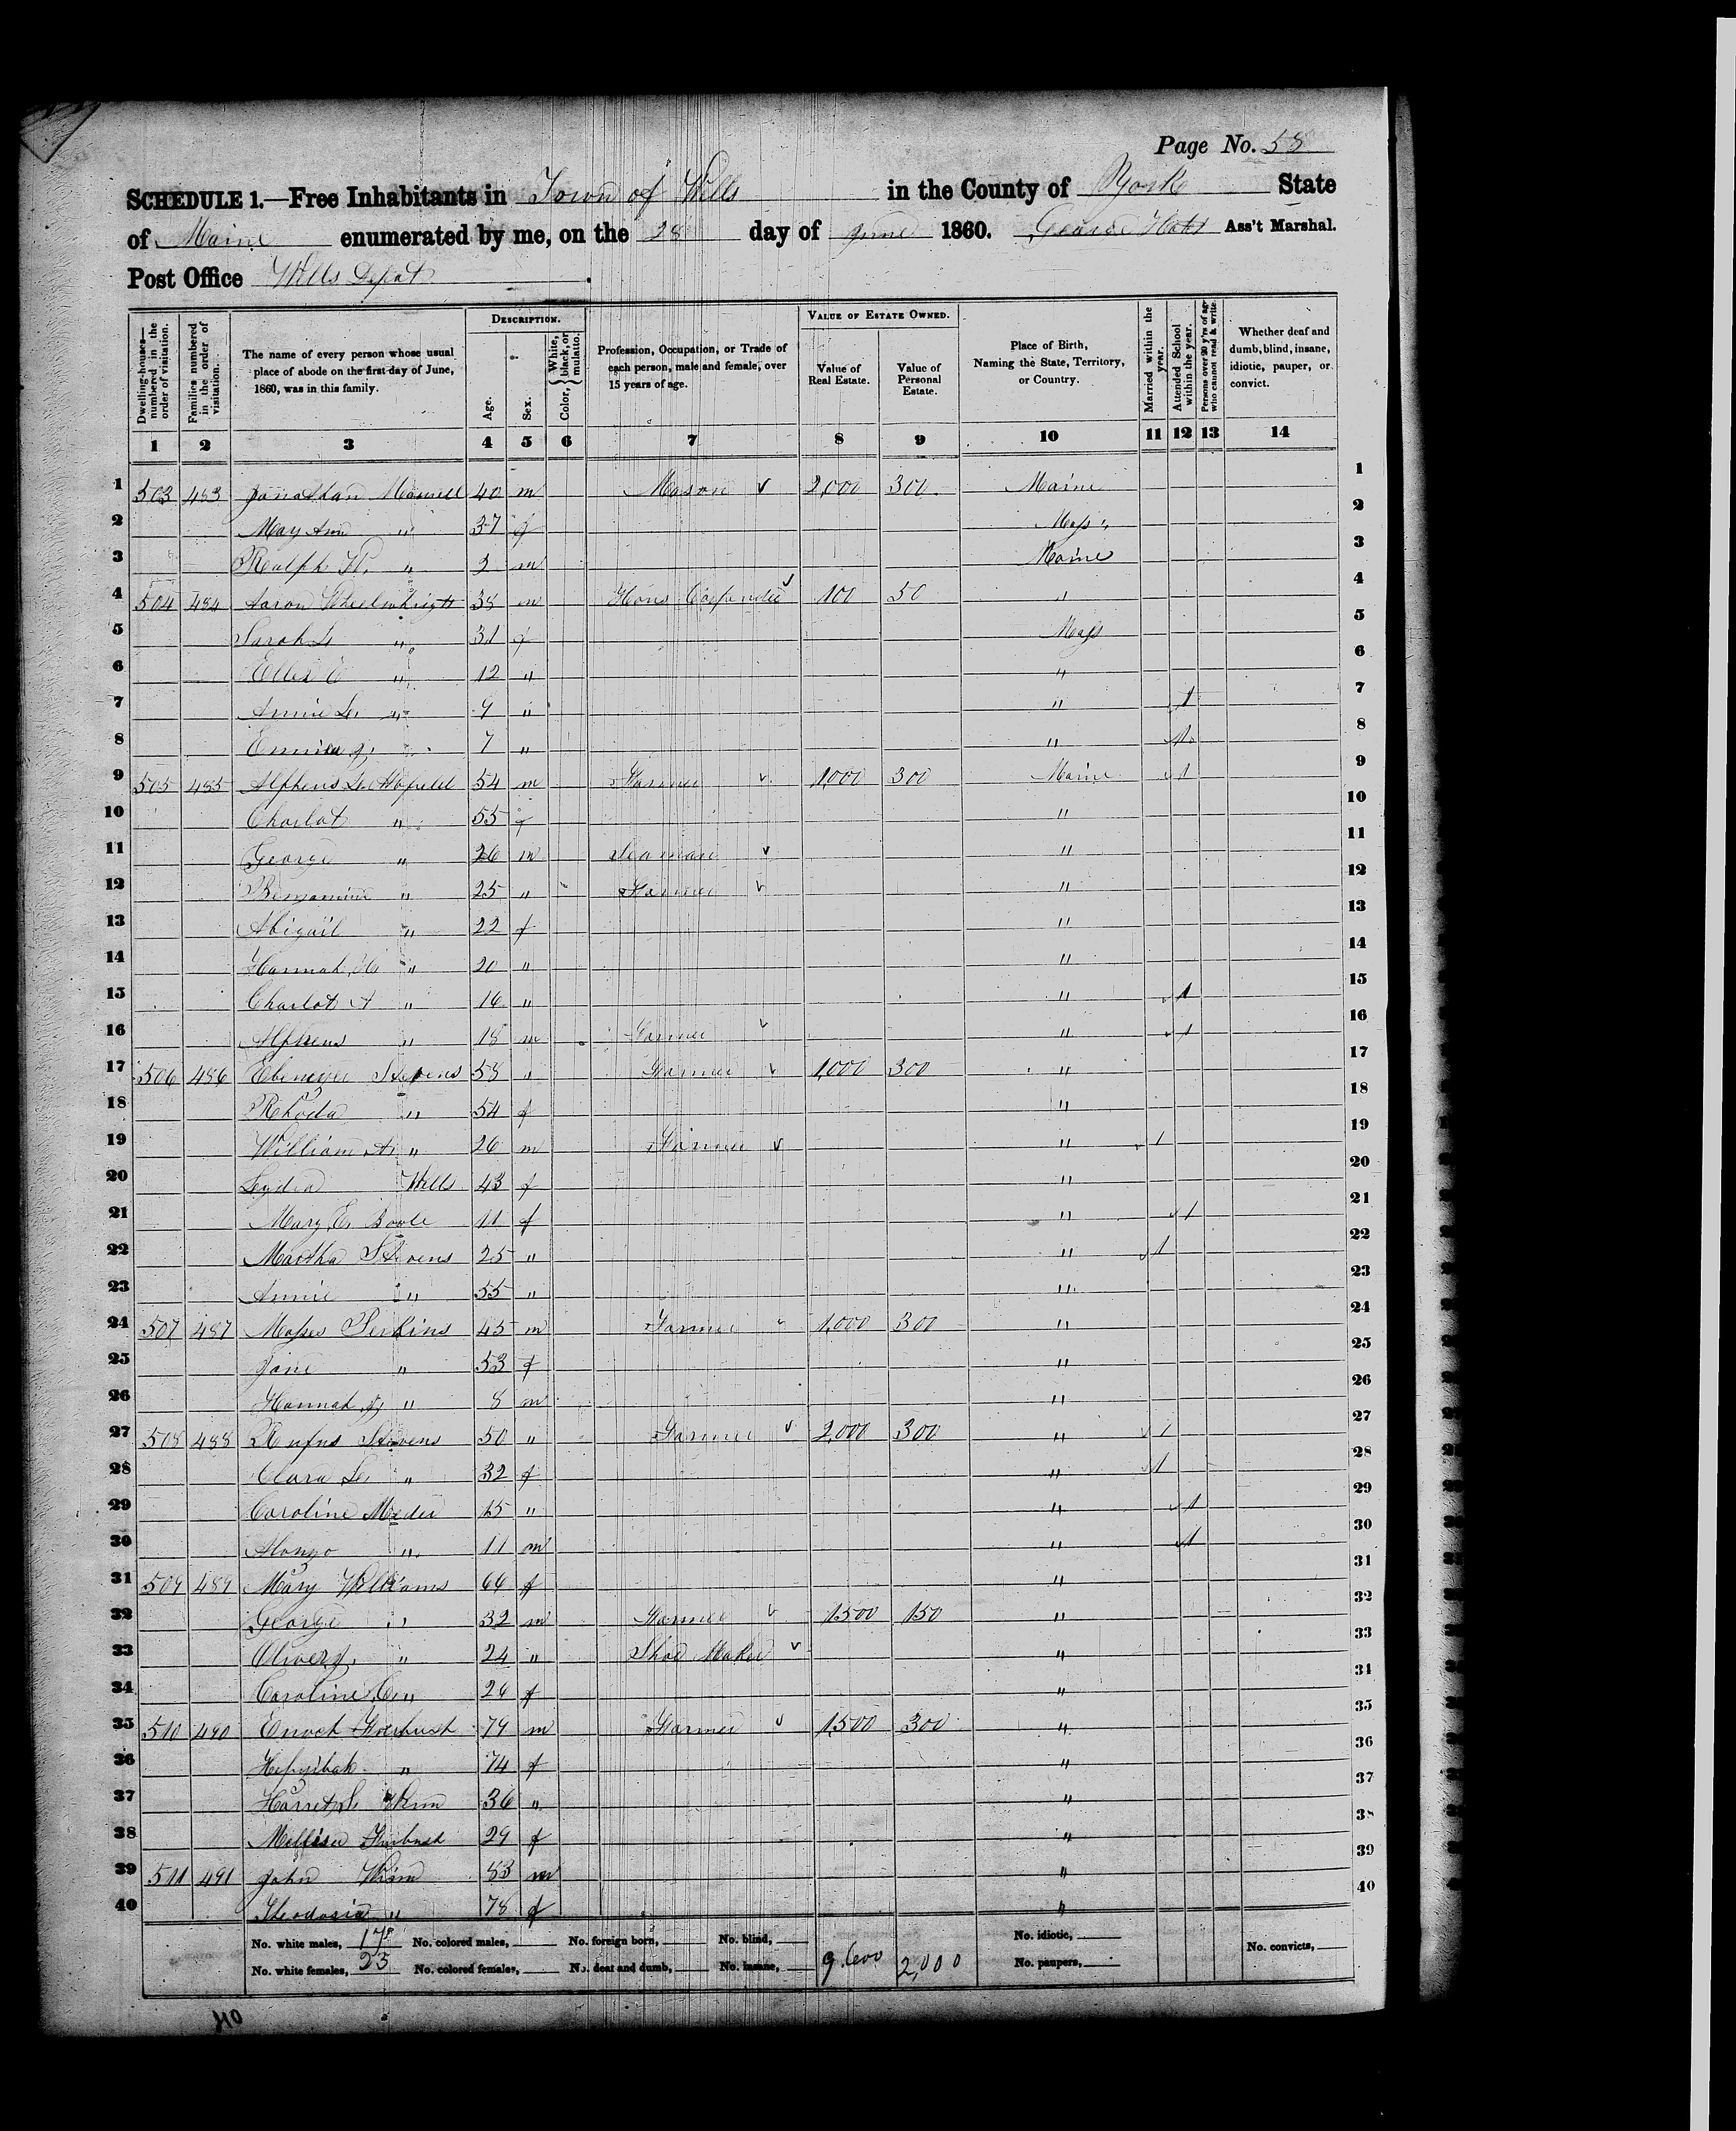 Page No. 58
SCHEDULE 1.—Free Inhabitants in Town of Wells in the County of York State
of Maine enumerated by me, on the 28 day of June 1860. George Ass't Marshal.
Post Office Wells Depot
Dwelling-houses—numbered in the order of visitation.
Families numbered in the order of visitation.
The name of every person whose usual place of abode on the first day of June, 1860, was in this family.
DESCRIPTION.
Age.
Sex.
Color, White, black, or mulatto.
Profession, Occupation, or Trade of each person, male and female, over 15 years of age.
VALUE OF ESTATE OWNED.
Value of Real Estate.
Value of Personal Estate.
Place of Birth, Naming the State, Territory, or Country.
Married within the year.
Attended School within the year.
Persons over 20 y'rs of age who cannot read & write.
Whether deaf and dumb, blind, insane, idiotic, pauper, or convict.
1 2 3 4 5 6 7 8 9 10 11 12 13 14
1 503 483 Jonathan Maxwell 40 m Mason 2,000 300 Maine 1
2 May Ann " 37 f Mass " 2
3 Ralph " 3 m Maine 3
4 504 484 Aaron Wheelwright 38 m 100 50 " 4
5 Sarah L " 31 f Mass 5
6 E " 12 " " 6
7 Annie L. " 9 " " 1 7
8 J. " 7 " " 1 8
9 505 485 54 m Farmer 1,000 300 Maine 1 9
10 Charlot " 55 f " 10
11 George " 26 m Seaman " 11
12 Benjamine " 25 " Farmer " 12
13 Abigail " 22 f " 13
14 Hannah " 20 " " 14
15 Charlot A " 16 " " 1 15
16 Alpheus " 18 m Farmer " 1 16
17 506 486 Ebenezer Stevens 58 " Farmer 1,000 300 " 17
18 Rhoda " 54 f " 18
19 William A. " 26 m Farmer " 1 19
20 Lydia Wells 43 f " 20
21 Mary E. 11 f " 1 21
22 Martha Stevens 25 " " 1 22
23 Annie " 55 " " 23
24 507 487 Moses Perkins 45 m Farmer 1,000 300 " 24
25 Jane " 53 f " 25
26 Hannah J. " 8 m " 26
27 508 488 Rufus Stevens 50 " Farmer 2,000 300 " 1 27
28 Clara L. " 32 f " 1 28
29 Caroline 15 " " 1 29
30 Alonzo " 11 m " 1 30
31 509 489 Mary Williams 66 f " 31
32 George " 32 m Farmer 1500 150 " 32
33 Oliver J. " 24 " Shoe Maker " 33
34 Caroline C. " 26 f " 34
35 510 490 Enoch 79 m Farmer 1,500 300 " 35
36 Hepzibah " 74 f " 36
37 36 " " 37
38 29 f " 38
39 511 491 John 83 m " 39
40 Theodosia " 78 f " 40
No. white males, 17 No. colored males, No. foreign born, No. blind, No. idiotic,
No. white females, 23 No. colored females, No. deaf and dumb, No. insane, 9,600 2,000 No. paupers, No. convicts,
40